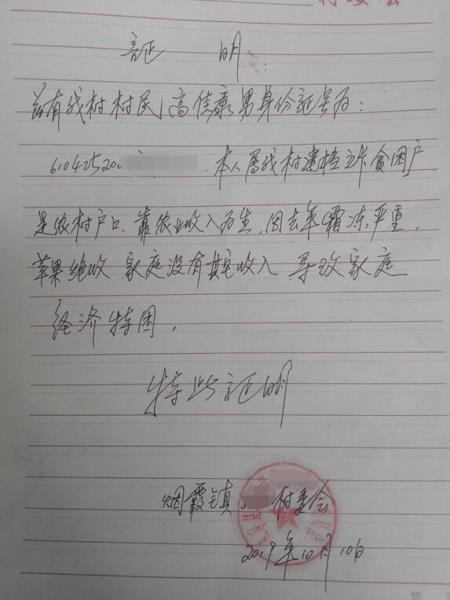 村委会
证 明
兹有我村村民高佳康男身份证号为：
61042520 本人属我村建档立卡贫困户
是农村户口、靠农业收入为生，因去年霜冻严重，
苹果绝收 家庭没有其它收入 导致家庭
经济特困。
特此证明
烟霞镇 村委会
2019年10月10日